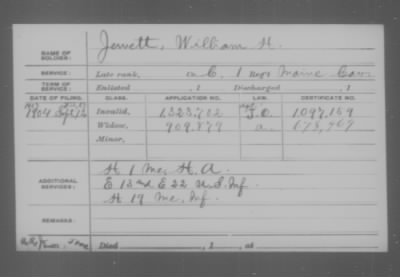 NAME OF SOLDIER: Jewett, William H.
SERVICE: Late rank, in C, 1 Reg't Maine Cav.
Enlisted , 1 Discharged , 1
DATE OF FILING. CLASS. APPLICATION NO. LAW. CERTIFICATE NO.
1904 Invalid, 1323,702 1097,159
Widow, 909,879 a. 673,769
Minor,
ADDITIONAL SERVICES:
H 1 Me. H. A.
E 13 and E 22 U.S. Inf
H 19 Me. Inf.
REMARKS:
Died , 1 , at